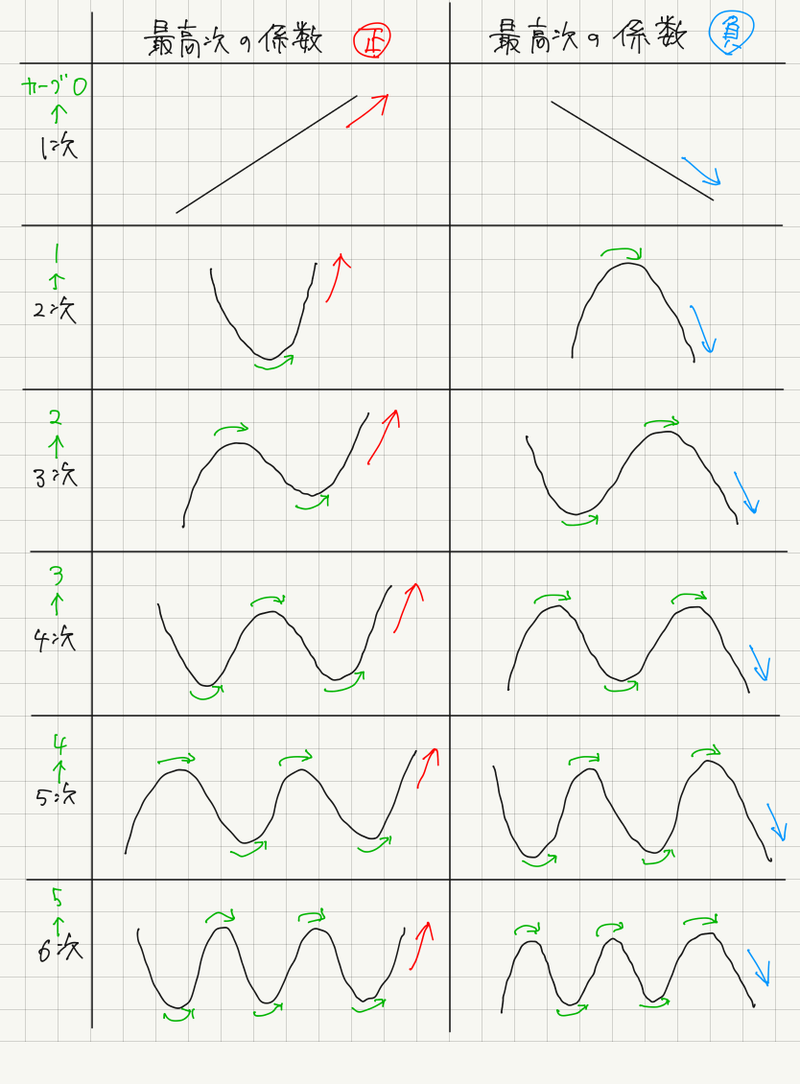 最高次の係数 正
最高次の係数 負
カーブ0
↑
1次
1
↑
2次
2
↑
3次
3
↑
4次
4
↑
5次
5
↑
6次